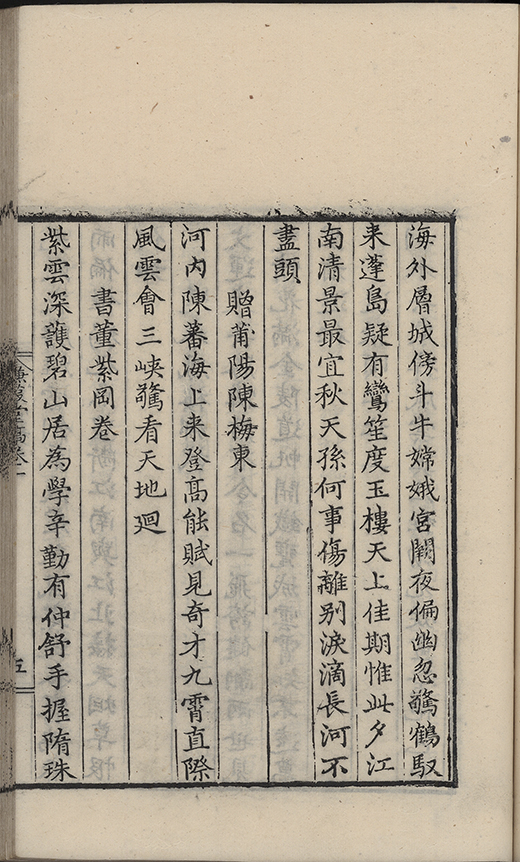 海外層城傍斗牛嫦娥宮闕夜偏幽忽驚鶴馭
来蓬島疑有鸞笙度玉樓天上佳期惟此夕江
南清景最宜秋天孫何事傷離别淚滴長河不
盡頭
贈莆陽陳梅東
河内陳蕃海上来登高能賦見奇才九霄直際
風雲會三峽驚看天地廻
書董紫岡卷
紫雲深護碧山居為學辛勤有仲舒手握隋珠
五